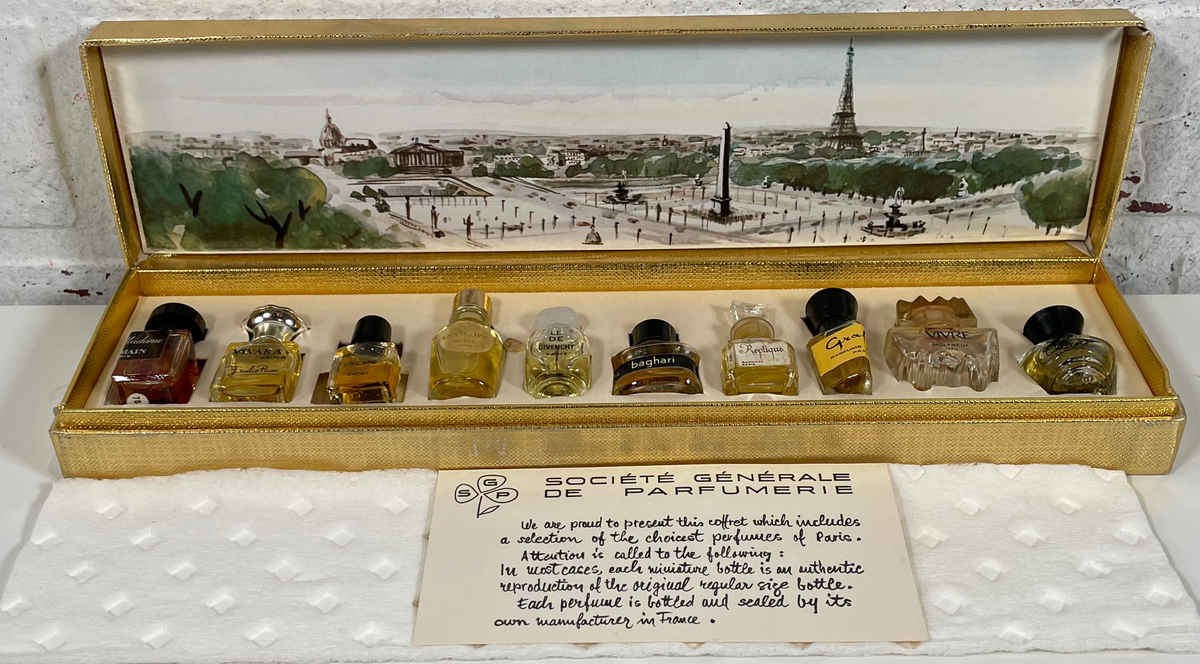 Madame
MAIN
VIVARA
Emilio Pucci
LE
DE
GIVENCHY
PARIS
baghari
Replique
Gra
PARFUMS
VIVRE
MOLYNEUX
S G P
SOCIÉTÉ GÉNÉRALE
DE PARFUMERIE
We are proud to present this coffret which includes
a selection of the choicest perfumes of Paris.
Attention is called to the following :
In most cases, each miniature bottle is an authentic
reproduction of the original regular size bottle.
Each perfume is bottled and sealed by its
own manufacturer in France .